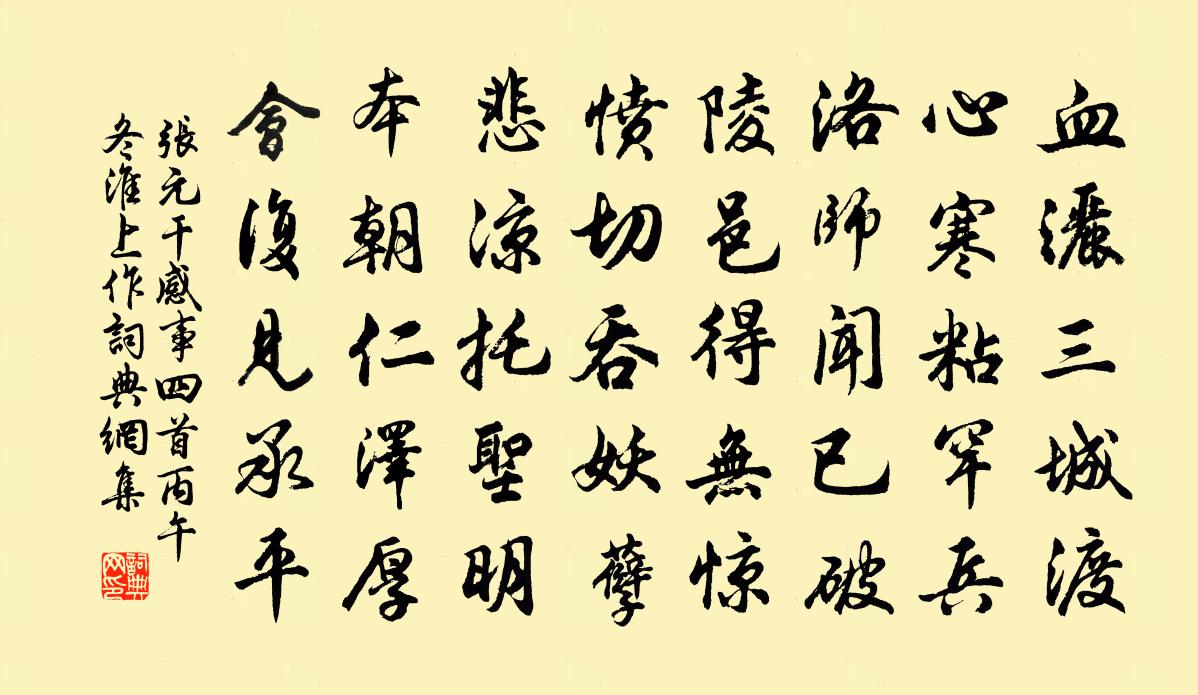 血灑三城渡
心寒粘罕兵
洛師聞已破
陵邑得無惊
憤切吞妖孽
悲涼托聖明
本朝仁澤厚
會復見承平
張元干感事四首丙午
冬淮上作詞典網集
詞典
网印